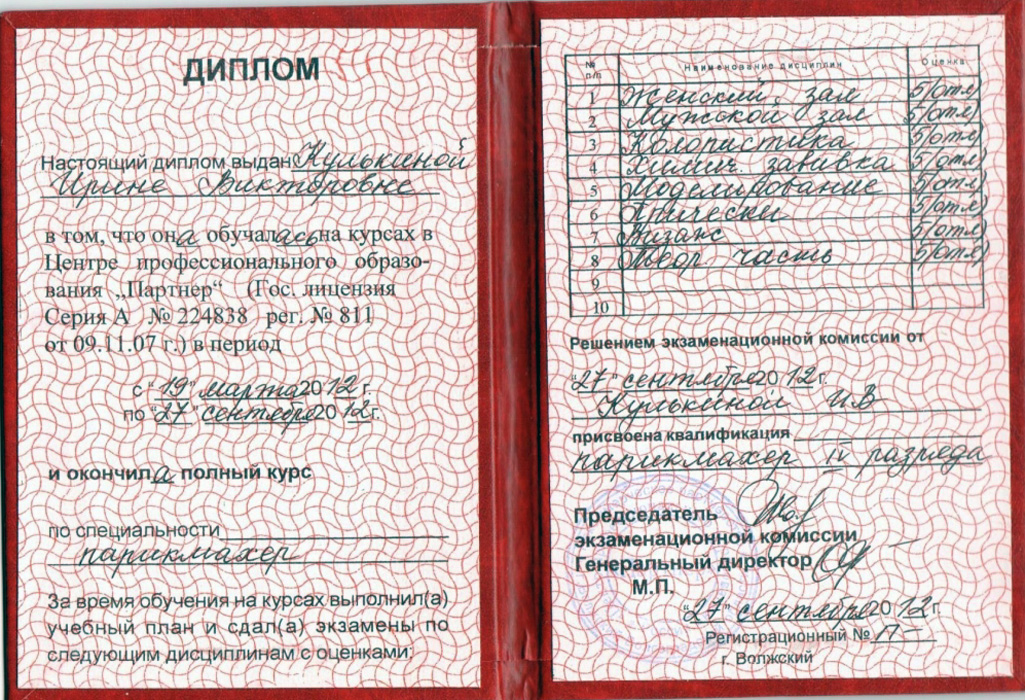 ДИПЛОМ
Настоящий диплом выдан Кулькиной
Ирине Викторовне
в том, что она обучалась на курсах в
Центре профессионального образо-
вания „Партнер“ (Гос. лицензия
Серия А № 224838 рег. № 811
от 09.11.07 г.) в период
с "19" марта 2012 г.
по "27" сентября 2012 г.
и окончила полный курс
по специальности
парикмахер
За время обучения на курсах выполнил(а)
учебный план и сдал(а) экзамены по
следующим дисциплинам с оценками:
№ п/п Наименование дисциплин Оценка
1 Женский зал 5/отл)
2 Мужской зал 5/отл)
3 Колористика 5/отл)
4 Химич. завивка 5/отл)
5 Моделирование 5/отл)
6 Прически 5/отл)
7 Визаж 5/отл)
8 Твор часть 5/отл)
9
10
Решением экзаменационной комиссии от
"27" сентября 2012 г.
Кулькиной И.В
присвоена квалификация
парикмахер IV разряда
Председатель
экзаменационной комиссии
Генеральный директор
М.П.
"27" сентября 2012 г.
Регистрационный №
г. Волжский